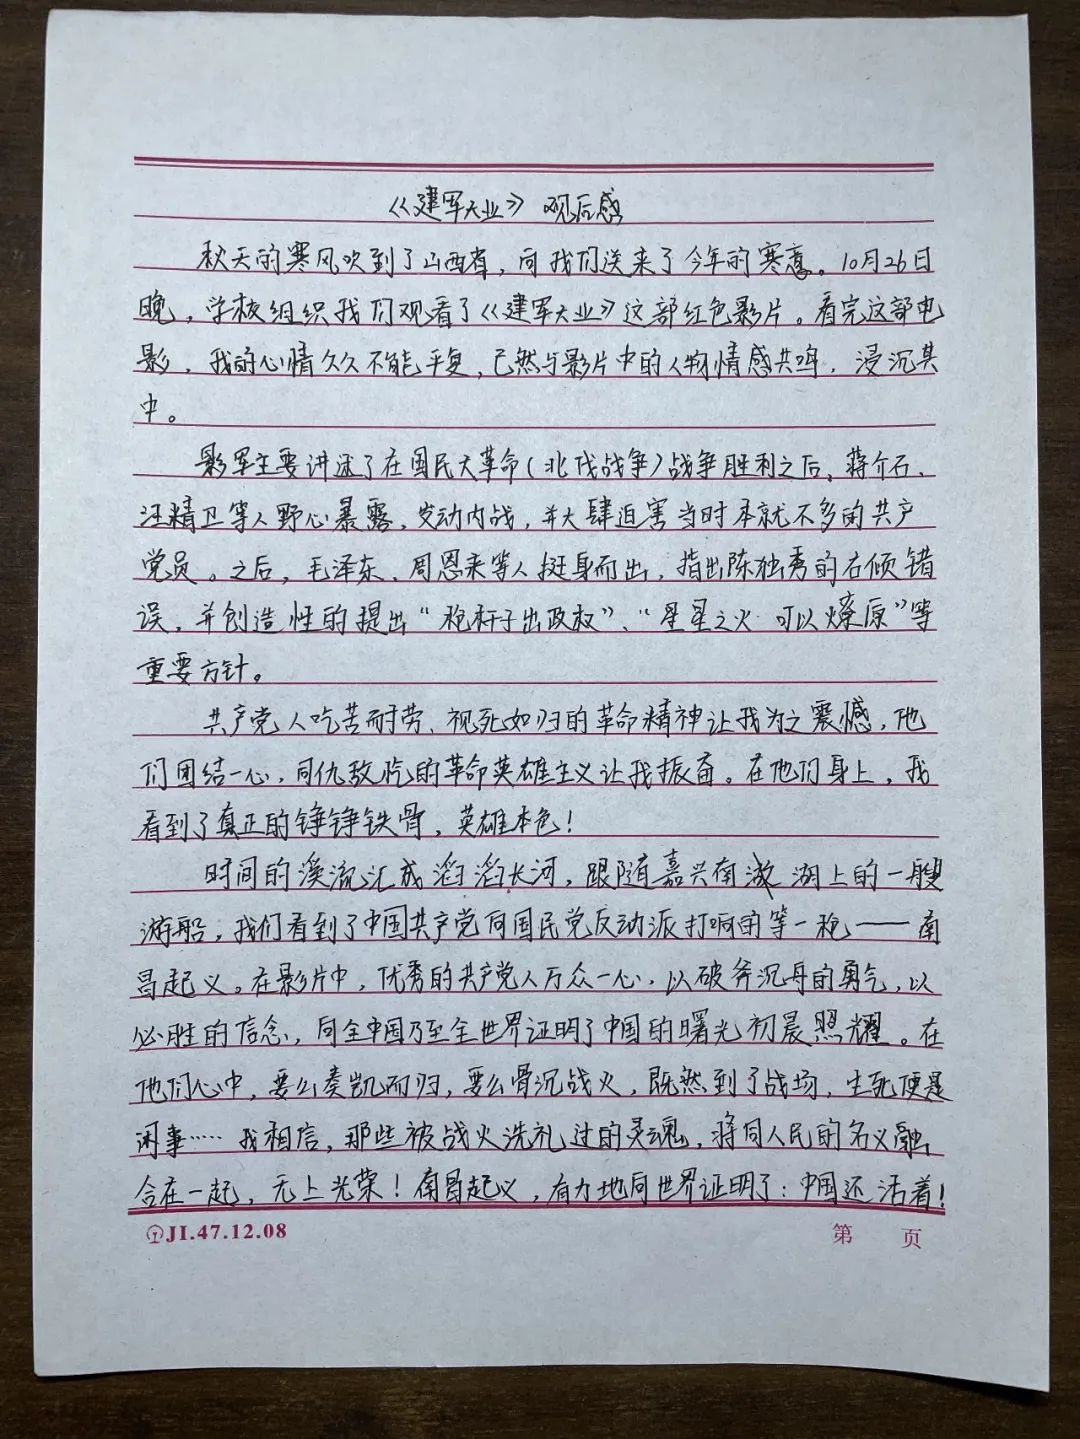 《建军大业》观后感
秋天的寒风吹到了山西省，向我们送来了今年的寒意。10月26日
晚，学校组织我们观看了《建军大业》这部红色影片。看完这部电
影，我的心情久久不能平复，已然与影片中的人物情感共鸣，浸沉其
中。
影军主要讲述了在国民大革命(北伐战争)战争胜利之后，蒋介石、
汪精卫等人野心暴露，发动内战，并大肆迫害当时本就不多的共产
党员。之后，毛泽东、周恩来等人挺身而出，指出陈独秀的右倾错
误，并创造性的提出“枪杆子出政权”、“星星之火 可以燎原”等
重要方针。
共产党人吃苦耐劳、视死如归的革命精神让我为之震憾，他
们团结一心，同仇敌忾的革命英雄主义让我振奋。在他们身上，我
看到了真正的铮铮铁骨，英雄本色！
时间的溪流汇成滔滔长河，跟随嘉兴南湖上的一艘
游船，我们看到了中国共产党向国民党反动派打响的第一枪——南
昌起义。在影片中，优秀的共产党人万众一心，以破斧沉舟的勇气，以
必胜的信念，向全中国乃至全世界证明了中国的曙光初晨照耀。在
他们心中，要么奏凯而归，要么骨沉战火，既然到了战场，生死便是
闲事…… 我相信，那些被战火洗礼过的灵魂，将同人民的名义融
合在一起，无上光荣！南昌起义，有力地向世界证明了：中国还活着！
JI.47.12.08 第 页